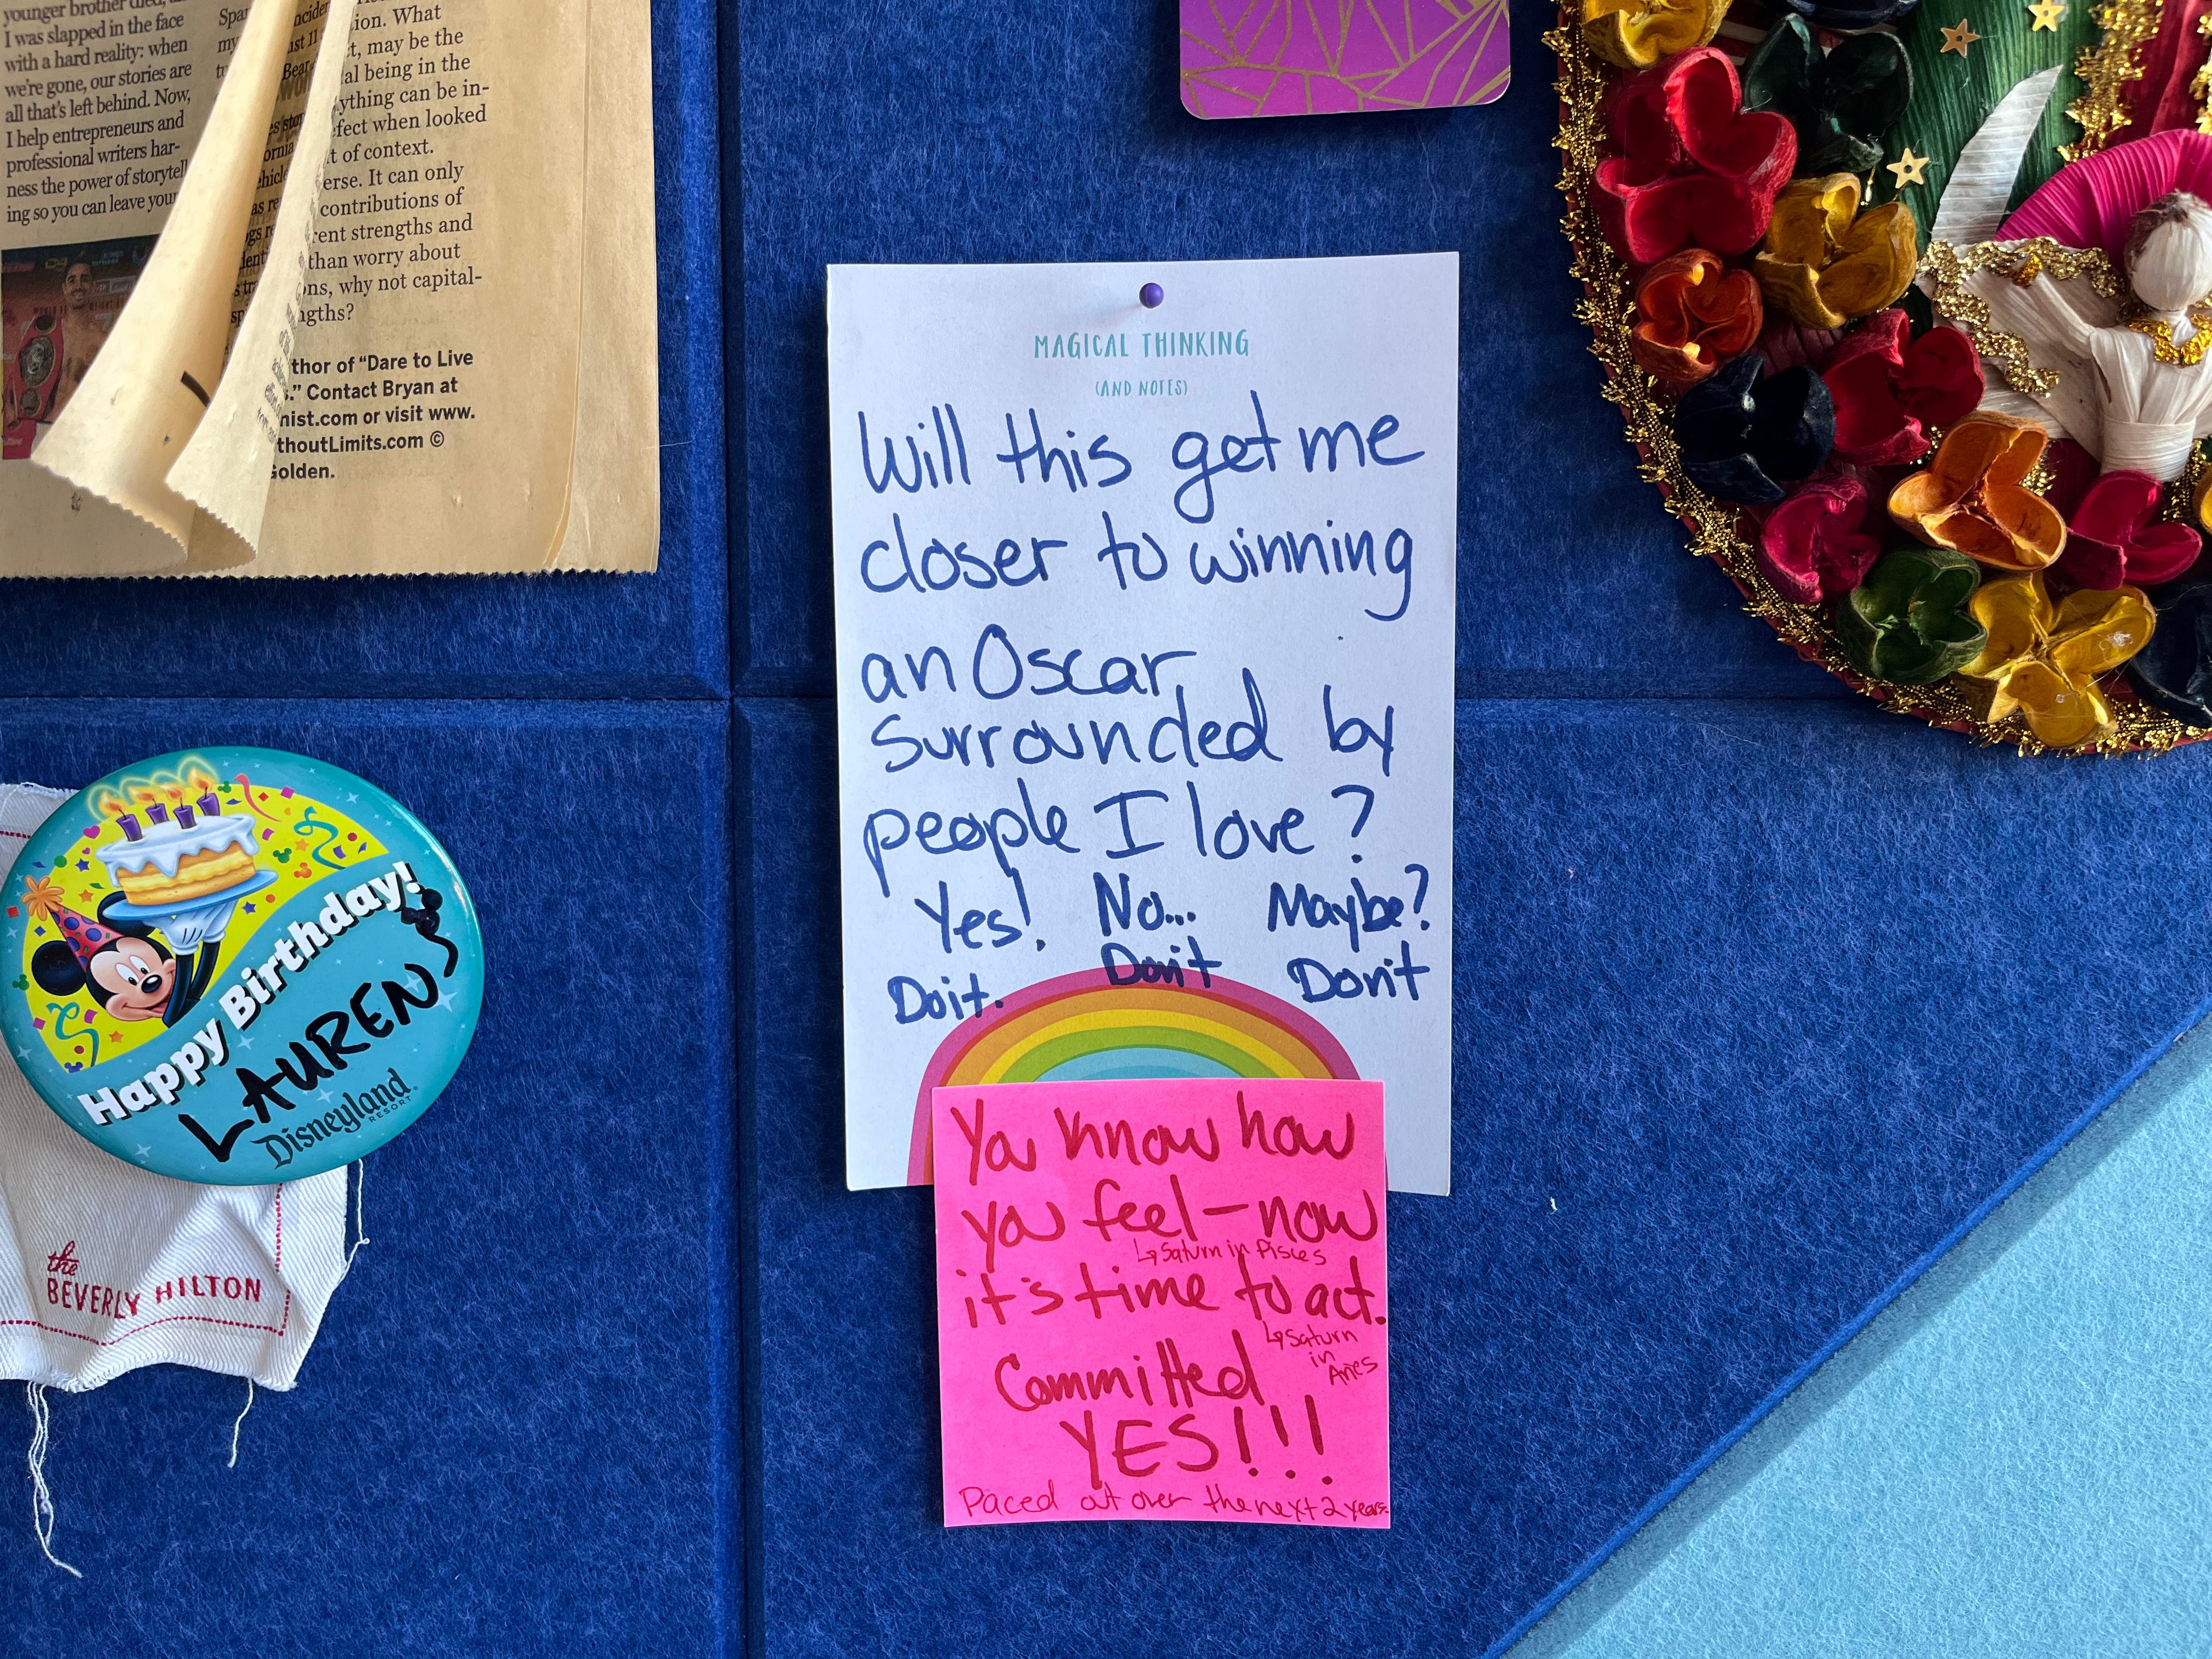 younger brother died,
I was slapped in the face
with a hard reality: when
we're gone, our stories are
all that's left behind. Now,
I help entrepreneurs and
professional writers har-
ness the power of storytel
ing so you can leave your
ion. What
t, may be the
al being in the
ything can be in-
fect when looked
t of context.
erse. It can only
contributions of
rent strengths and
than worry about
ns, why not capital-
ngths?
thor of “Dare to Live
.” Contact Bryan at
nist.com or visit www.
thoutLimits.com ©
Golden.
MAGICAL THINKING
(AND NOTES)
Will this get me
closer to winning
an Oscar
surrounded by
people I love?
Yes! No... Maybe?
Do it. Don't Don't
You know how
you feel – now
↳ Saturn in Pisces
it's time to act.
↳ Saturn
in
Aries
Committed
YES!!!
Paced out over the next 2 years.
Happy Birthday!
LAUREN
Disneyland
RESORT
the
BEVERLY HILTON